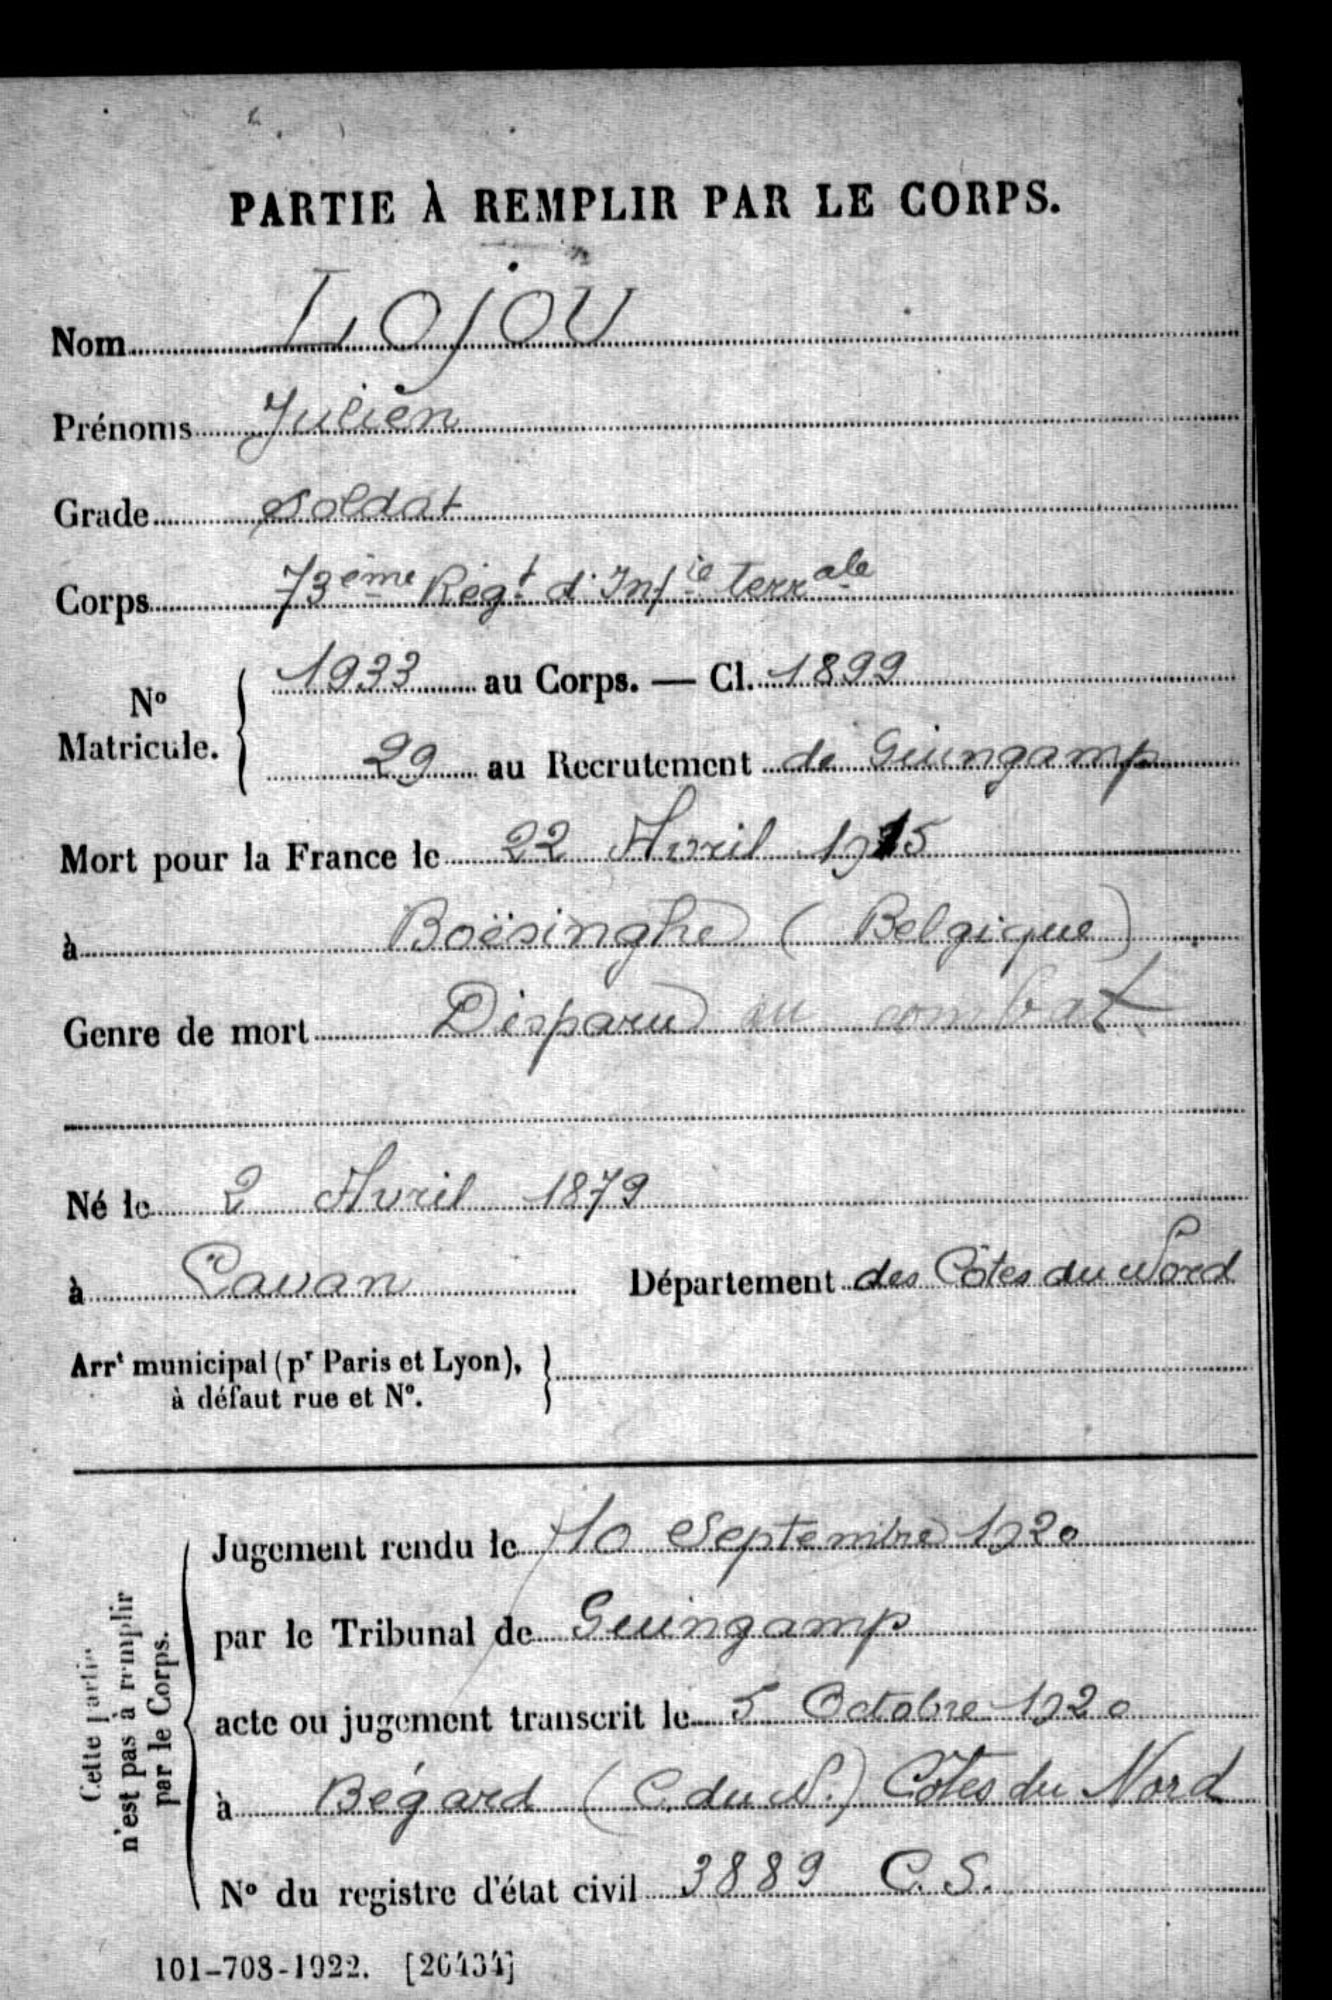 PARTIE À REMPLIR PAR LE CORPS.
Nom Lojou
Prénoms Julien
Grade Soldat
Corps 73ème Régt d'Infie terrale
No Matricule. { 1933 au Corps. — Cl. 1899
29 au Recrutement de Guingamp
Mort pour la France le 22 Avril 1915
à Boësinghe (Belgique)
Genre de mort Disparu au combat
Né le 2 Avril 1879
à Cavan Département des Côtes du Nord
Arrt municipal (pr Paris et Lyon), à défaut rue et No. }
Cette partie n'est pas à remplir par le Corps.
Jugement rendu le 10 Septembre 1920
par le Tribunal de Guingamp
acte ou jugement transcrit le 5 Octobre 1920
à Bégard (C. du N.) Côtes du Nord
No du registre d'état civil 3889 C.S.
101-708-1922. [26434]